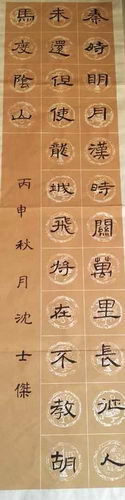 秦時明月漢時關萬里長征人
未還但使龍城飛將在不教胡
馬度陰山
丙申秋月沈士傑